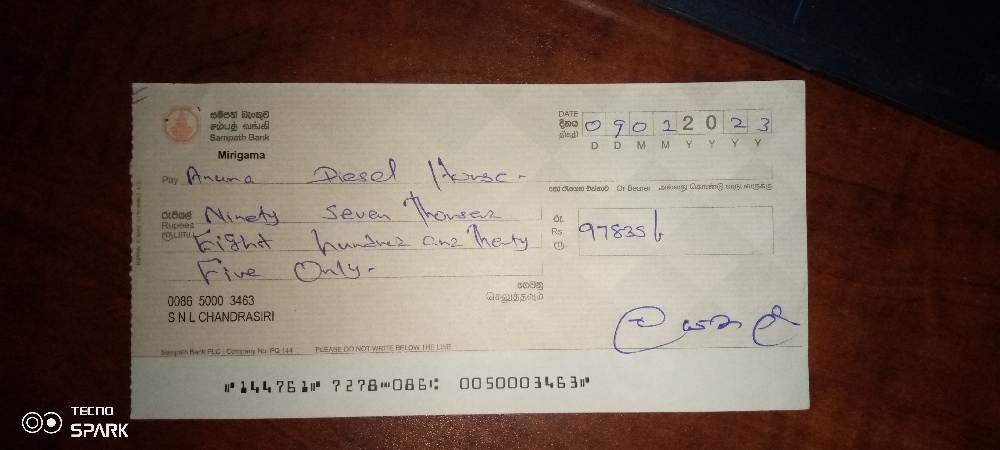 සම්පත් බැංකුව
சம்பத் வங்கி
Sampath Bank
Mirigama
DATE
දිනය
திகதி
09 01 2023
D D M M Y Y Y Y
Pay Anuna Diesel House -
හෝ රැගෙන එන්නාට Or Bearer அல்லது கொண்டு வருபவருக்கு
රුපියල් Ninety Seven Thousand
Rupees
ரூபாய் Eight hundred and Thirty
Five Only -
රු.
Rs. 97835/-
ரூ.
ගෙවනු
செலுத்தவும்
0086 5000 3463
S N L CHANDRASIRI
Sampath Bank PLC - Company No. PQ 144 PLEASE DO NOT WRITE BELOW THE LINE
⑈144761⑈ 7278⑉086⑆ 0050003463⑈
TECNO
SPARK